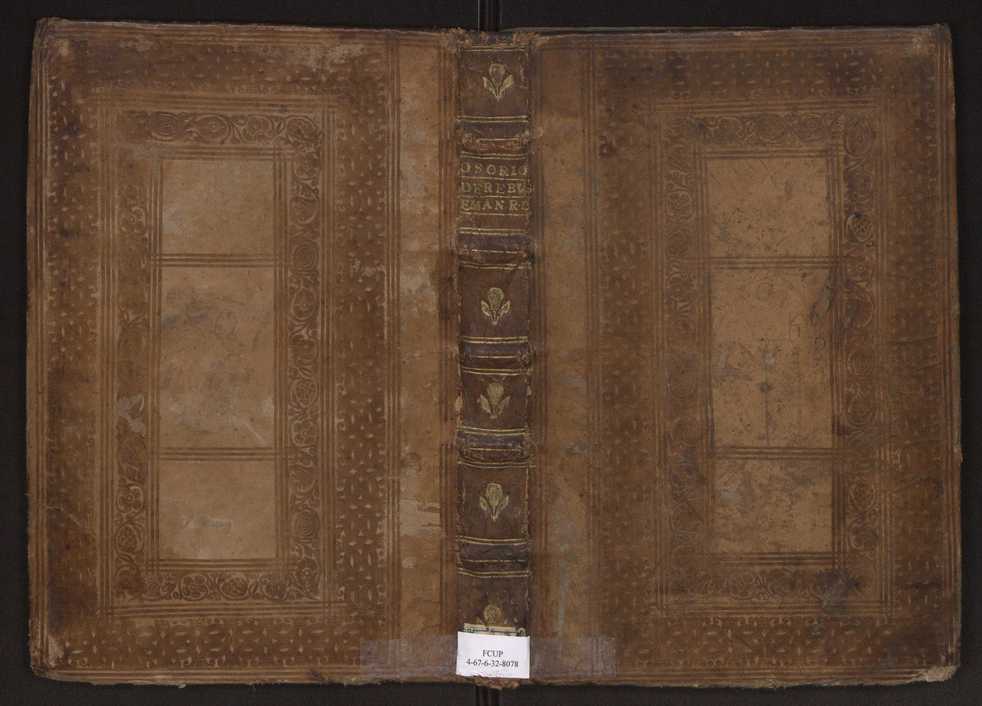 OSORIO
DEREBVS
EMAN R·L
FCUP
4-67-6-32-8078